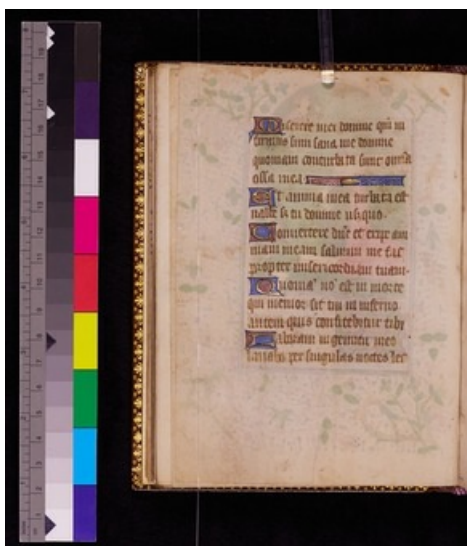 Miserere mei domine qm in
firmus sum sana me domine
quoniam conturbata sunt omia
ossa mea
Et anima mea turbata est
valde si tu domine usquo
Convertere dne et eripe ani
mam meam salvum me fac
propter misericordiam tuam
Quoniā no est in morte
qui memor sit tui in inferno
autem quis confitebitur tibi
Laboravi in gemitu meo
lavabo per singulas noctes lec